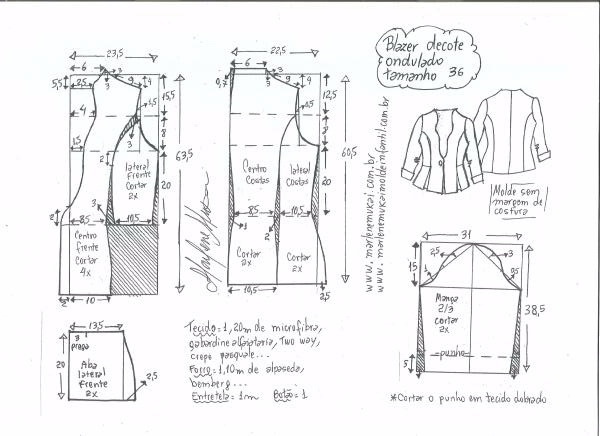 Blazer decote
ondulado
tamanho 36
23,5
6
5,5
2,5
3
9
4
15,5
1,5
4
8
3
1,5
2
lateral
Frente
Cortar
2x
20
63,5
3
2
8,5
10,5
Centro
frente
Cortar
4x
2
10
22,5
6
0,7
3
9
4
12,5
1,5
8
Centro
Costas
lateral
Costas
20
60,5
8,5
10,5
1
2
Cortar
2x
Cortar
2x
10,5
2,5
www.marlenemukai.com.br
www.marlenemukaimoldeinfantil.com.br
Molde sem
margem de
costura
31
15
2,5
3
1
0,5
Manga
2/3
cortar
2x
38,5
punho
5
*Cortar o punho em tecido dobrado
13,5
3
prega
20
Aba
lateral
frente
2x
2,5
Tecido= 1,20m de microfibra,
gabardine alfaiataria, Two way,
crepe pasquale...
Forro= 1,10m de alpaseda,
bemberg...
Entretela= 1m Botão= 1